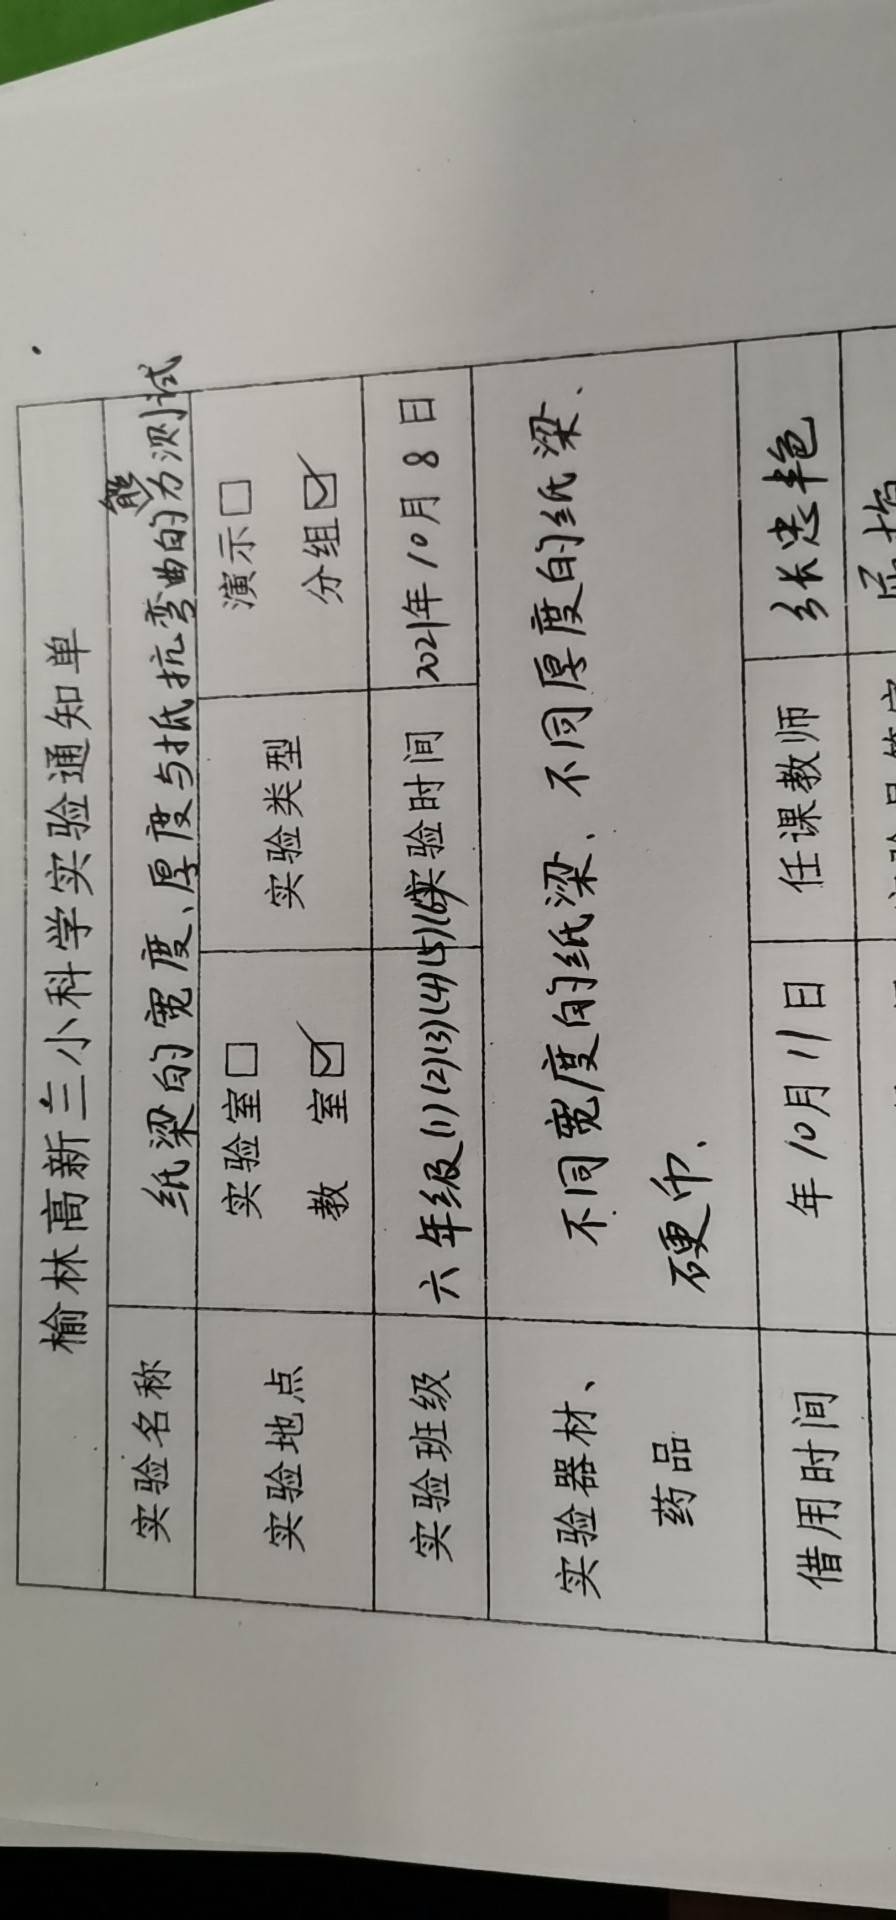 榆林高新三小科学实验通知单
实验名称 纸梁的宽度、厚度与抵抗弯曲的能力测试
实验地点 实验室□ 教 室☑ 实验类型 演示□ 分组☑
实验班级 六年级(1)(2)(3)(4)(5)(6) 实验时间 2021年10月8日
实验器材、 不同宽度的纸梁、不同厚度的纸梁、
药品 硬币、
借用时间 年10月11日 任课教师 张忠艳